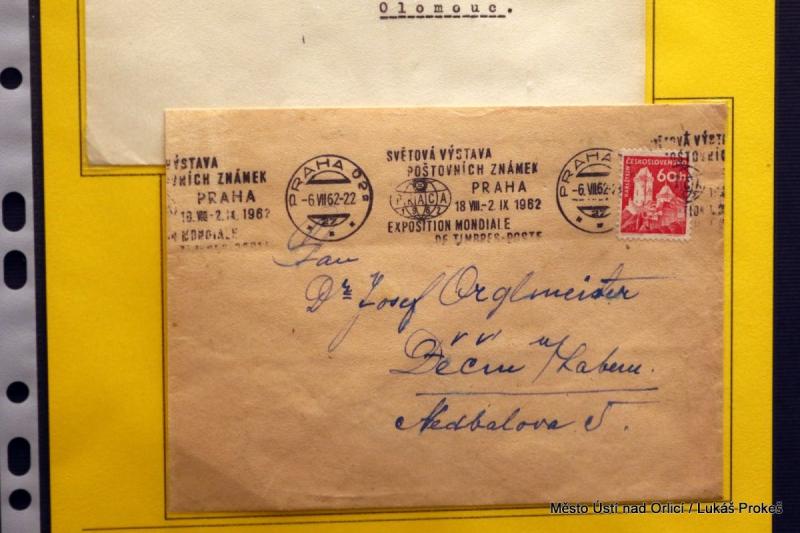 Olomouc.
VÝSTAVA
POŠTOVNÍCH ZNÁMEK
PRAHA
18 VIII.-2. IX 1962
N MONDIALE
PRAHA 025
-6.VII62-22
az
SVĚTOVÁ VÝSTAVA
POŠTOVNÍCH ZNÁMEK
PRAGA
1962
PRAHA
18 VIII.-2. IX 1962
EXPOSITION MONDIALE
DE TIMBRES-POSTE
PRAHA
-6.VII62-2
az
ČESKOSLOVENSKO
60h
KARLŠTEJN
Pan
Dr Josef Orglmeister
Děčín n/Labem.
Nedbalova 5.
Město Ústí nad Orlicí / Lukáš Prokeš